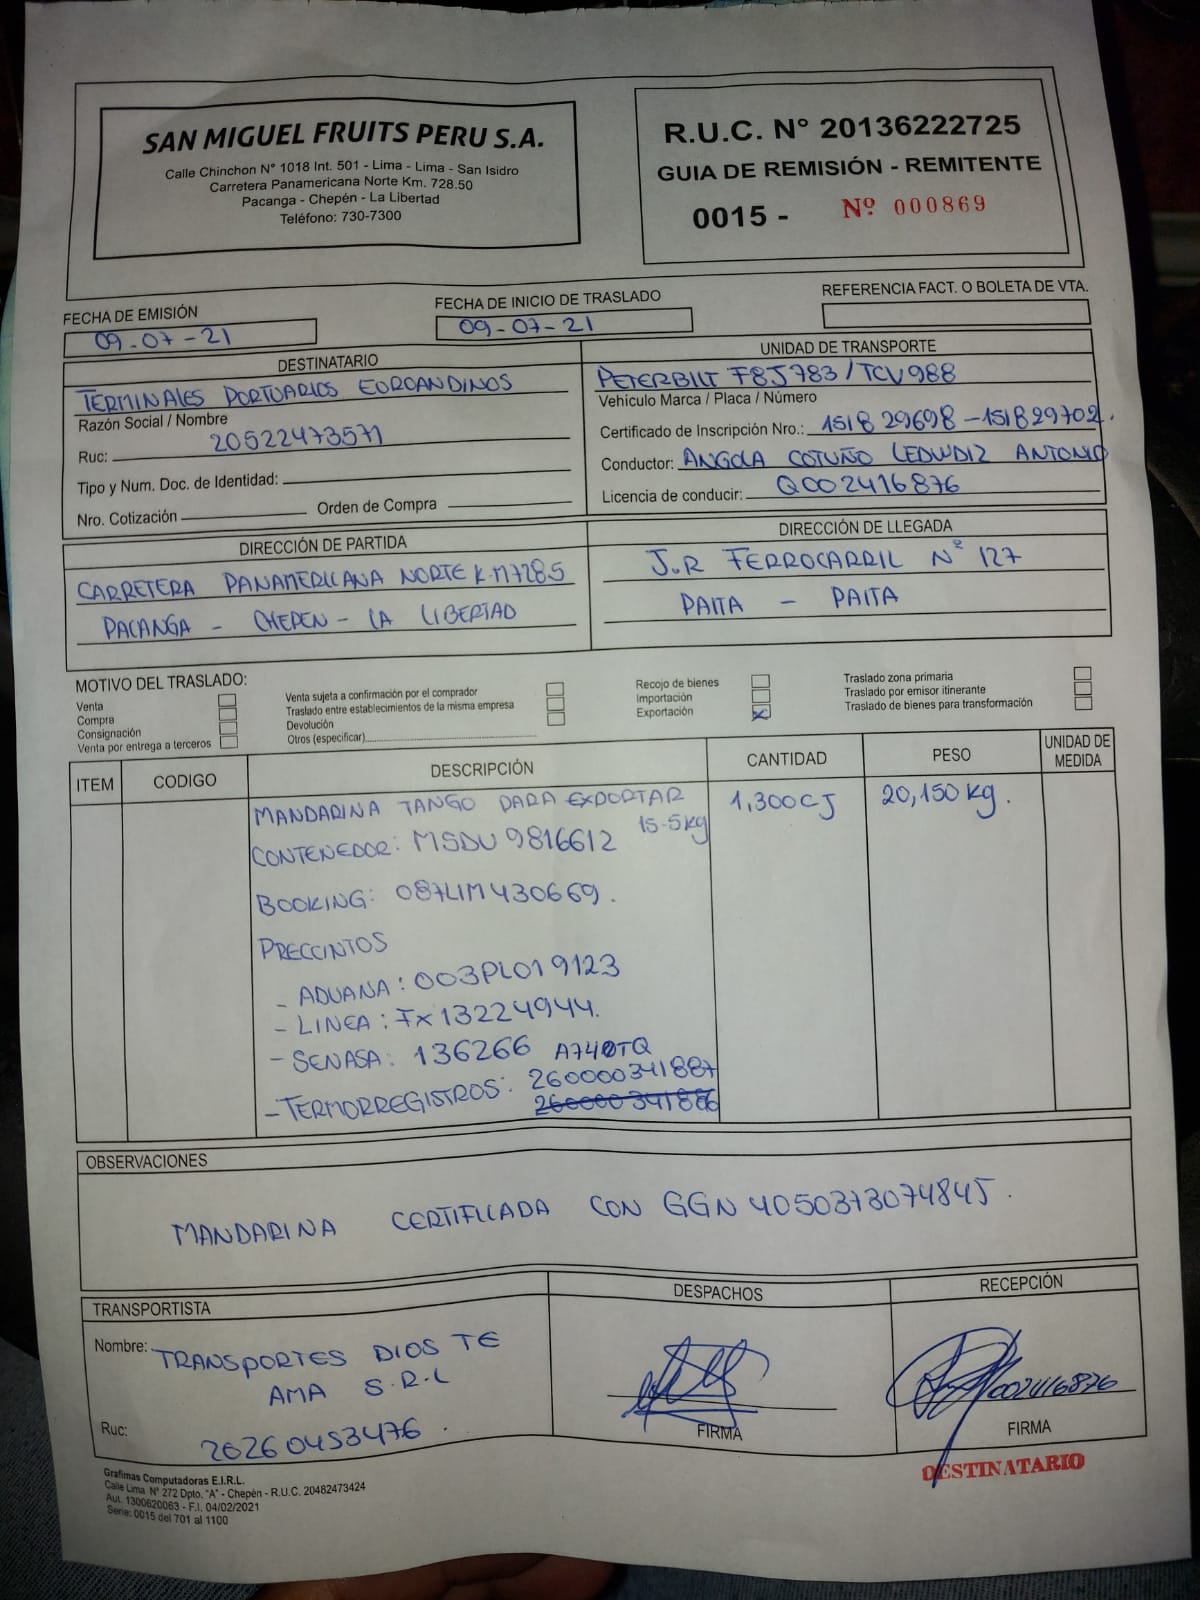 SAN MIGUEL FRUITS PERU S.A.
Calle Chinchon N° 1018 Int. 501 - Lima - Lima - San Isidro
Carretera Panamericana Norte Km. 728.50
Pacanga - Chepén - La Libertad
Teléfono: 730-7300
R.U.C. N° 20136222725
GUIA DE REMISIÓN - REMITENTE
0015 - Nº 000869
FECHA DE EMISIÓN
09-07-21
FECHA DE INICIO DE TRASLADO
09-07-21
REFERENCIA FACT. O BOLETA DE VTA.
DESTINATARIO
TERMINALES PORTUARIOS EUROANDINOS
Razón Social / Nombre
Ruc: 20522473571
Tipo y Num. Doc. de Identidad:
Nro. Cotización Orden de Compra
UNIDAD DE TRANSPORTE
PETERBILT F8J783/TCV988
Vehículo Marca / Placa / Número
Certificado de Inscripción Nro.: 151829698-151829702.
Conductor: ANGOLA COTUÑO ANTONIO
Licencia de conducir: Q002416876
DIRECCIÓN DE PARTIDA
CARRETERA PANAMERICANA NORTE K.M728.5
PACANGA - CHEPEN - LA LIBERTAD
DIRECCIÓN DE LLEGADA
J.R FERROCARRIL Nº 127
PAITA - PAITA
MOTIVO DEL TRASLADO:
Venta
Compra
Consignación
Venta por entrega a terceros
Venta sujeta a confirmación por el comprador
Traslado entre establecimientos de la misma empresa
Devolución
Otros (especificar)
Recojo de bienes
Importación
Exportación X
Traslado zona primaria
Traslado por emisor itinerante
Traslado de bienes para transformación
ITEM CODIGO DESCRIPCIÓN CANTIDAD PESO UNIDAD DE MEDIDA
MANDARINA TANGO PARA EXPORTAR 1,300CJ 20,150 kg.
15.5kg
CONTENEDOR: MSDU 9816612
BOOKING: 087LIM430669.
PRECCINTOS
- ADUANA: 003PL019123
- LINEA: FX13224944.
- SENASA: 136266 A740TQ
- TERMORREGISTROS: 260000341887
260000341886
OBSERVACIONES
MANDARINA CERTIFICADA CON GGN 4050373074845.
TRANSPORTISTA
Nombre: TRANSPORTES DIOS TE
AMA S.R.L
Ruc: 20260453476.
DESPACHOS
FIRMA
RECEPCIÓN
002416876
FIRMA
DESTINATARIO
Grafimas Computadoras E.I.R.L.
Calle Lima N° 272 Dpto. "A" - Chepén - R.U.C. 20482473424
Aut. 1300620063 - F.I. 04/02/2021
Serie: 0015 del 701 al 1100